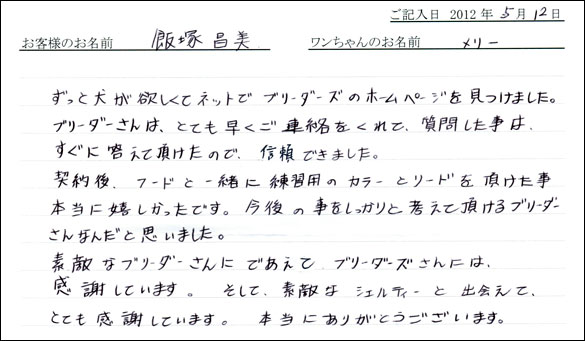 ご記入日 2012年5月12日
お客様のお名前 飯塚昌美 ワンちゃんのお名前 メリー
ずっと犬が欲しくてネットでブリーダーズのホームページを見つけました。
ブリーダーさんは、とても早くご連絡をくれて、質問した事は、
すぐに答えて頂けたので、信頼できました。
契約後、フードと一緒に練習用のカラーとリードを頂けた事
本当に嬉しかったです。今後の事をしっかりと考えて頂けるブリーダー
さんなんだと思いました。
素敵なブリーダーさんにであえて、ブリーダーズさんには、
感謝しています。そして、素敵なシェルティーと出会えて、
とても感謝しています。本当にありがとうございます。